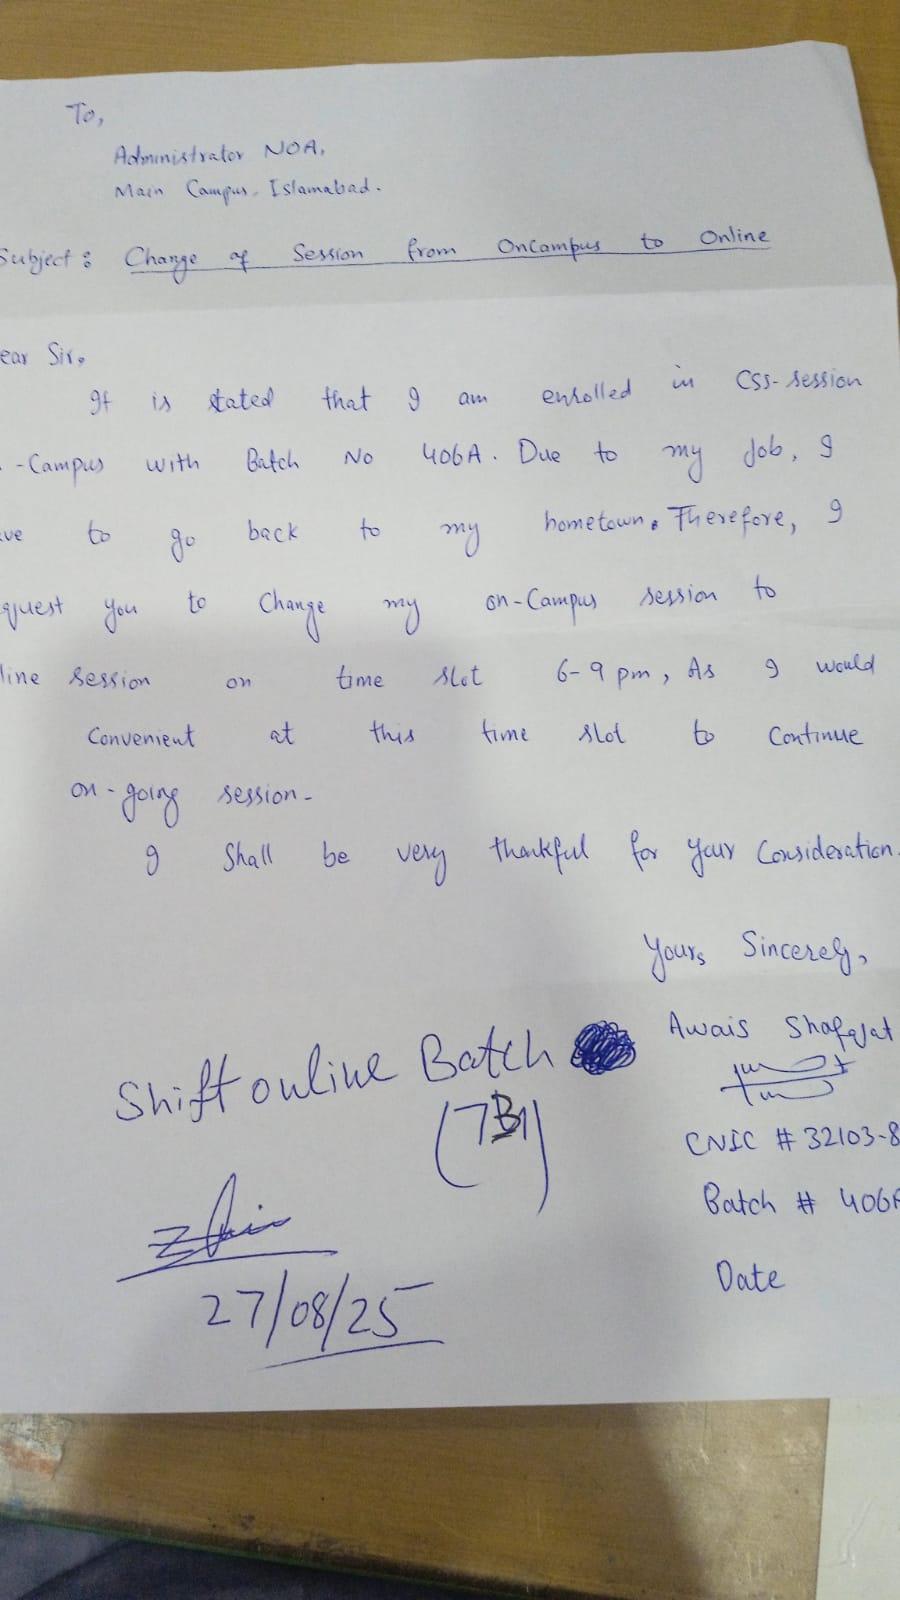 To,
Administrator NOA,
Main Campus, Islamabad.
Subject: Change of Session from OnCampus to Online
ear Sir,
It is stated that I am enrolled in CSS-session
-Campus with Batch No 406A. Due to my Job, I
ve to go back to my hometown. Therefore, I
quest you to Change my on-Campus session to
line session on time slot 6-9 pm, As I would
Convenient at this time slot to Continue
on-going session.
I Shall be very thankful for your Consideration.
Yours Sincerely,
Awais Shafqat
CNIC # 32103-8
Batch # 406A
Date
Shift online Batch
(7B1)
27/08/25